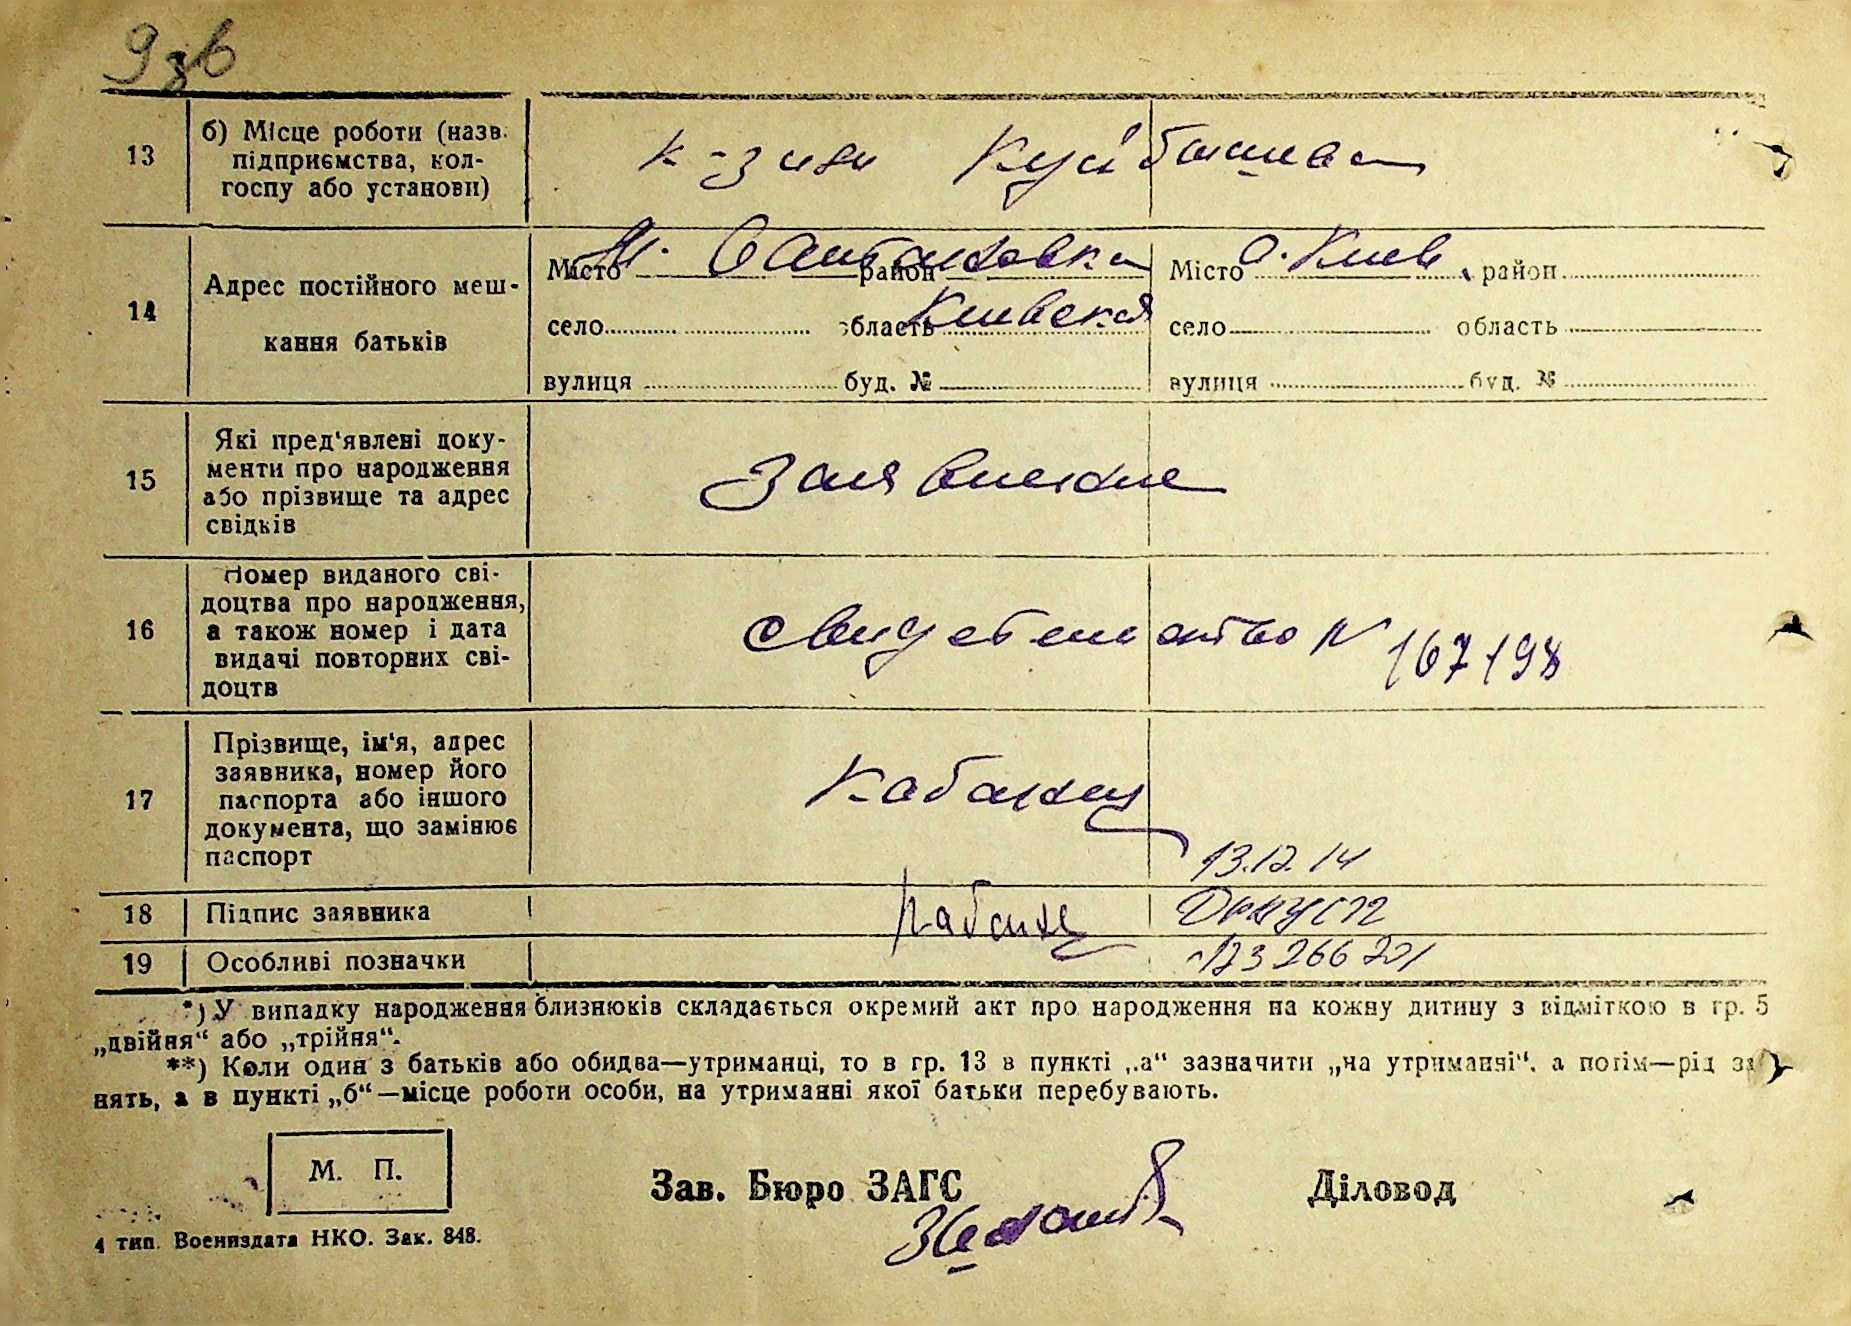 9зв
13
б) Місце роботи (назв.
підприємства, кол-
госпу або установи)
к-з им Куйбышева
14
Адрес постійного меш-
кання батьків
Місто район
село область Киевская
вулиця буд. №
Місто Киев, район
село область
вулиця буд. №
15
Які пред'явлені доку-
менти про народження
або прізвище та адрес
свідків
Заявление
16
Номер виданого сві-
доцтва про народження,
а також номер і дата
видачі повторних сві-
доцтв
свидетельство N 167198
17
Прізвище, ім'я, адрес
заявника, номер його
паспорта або іншого
документа, що замінює
паспорт
Кабанец
13.12.14
18
Підпис заявника
Кабанец
19
Особливі позначки
*) У випадку народження близнюків складається окремий акт про народження на кожну дитину з відміткою в гр. 5
„двійня“ або „трійня“.
**) Коли один з батьків або обидва—утриманці, то в гр. 13 в пункті „а“ зазначити „на утриманні“, а потім—рід за
нять, а в пункті „б“—місце роботи особи, на утриманні якої батьки перебувають.
М. П.
Зав. Бюро ЗАГС
Діловод
4 тип. Воениздата НКО. Зак. 848.